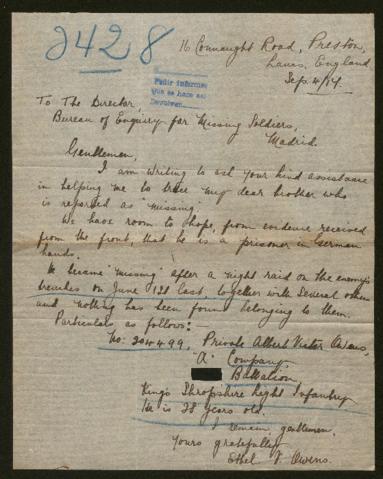 2428
16 Connaught Road, Preston,
Lancs, England
Sep. 4/17.
Pedir informes
que se hace así
To The Director,
Bureau of Enquiry for Missing Soldiers,
Madrid.
Gentlemen,
I am writing to ask your kind assistance
in helping me to trace my dear brother who
is reported as "missing".
We have room to hope, from evidence received
from the front, that he is a prisoner in German
hands.
He became "missing" after a night raid on the enemy's
trenches on June last, together with several others
and nothing has been found belonging to them.
Particulars as follows:—
No: 204499, Private Albert Victor Owens,
"A" Company,
Battalion
King's Shropshire Light Infantry
He is 28 years old.
I remain, gentlemen,
Yours gratefully
Ethel V. Owens.